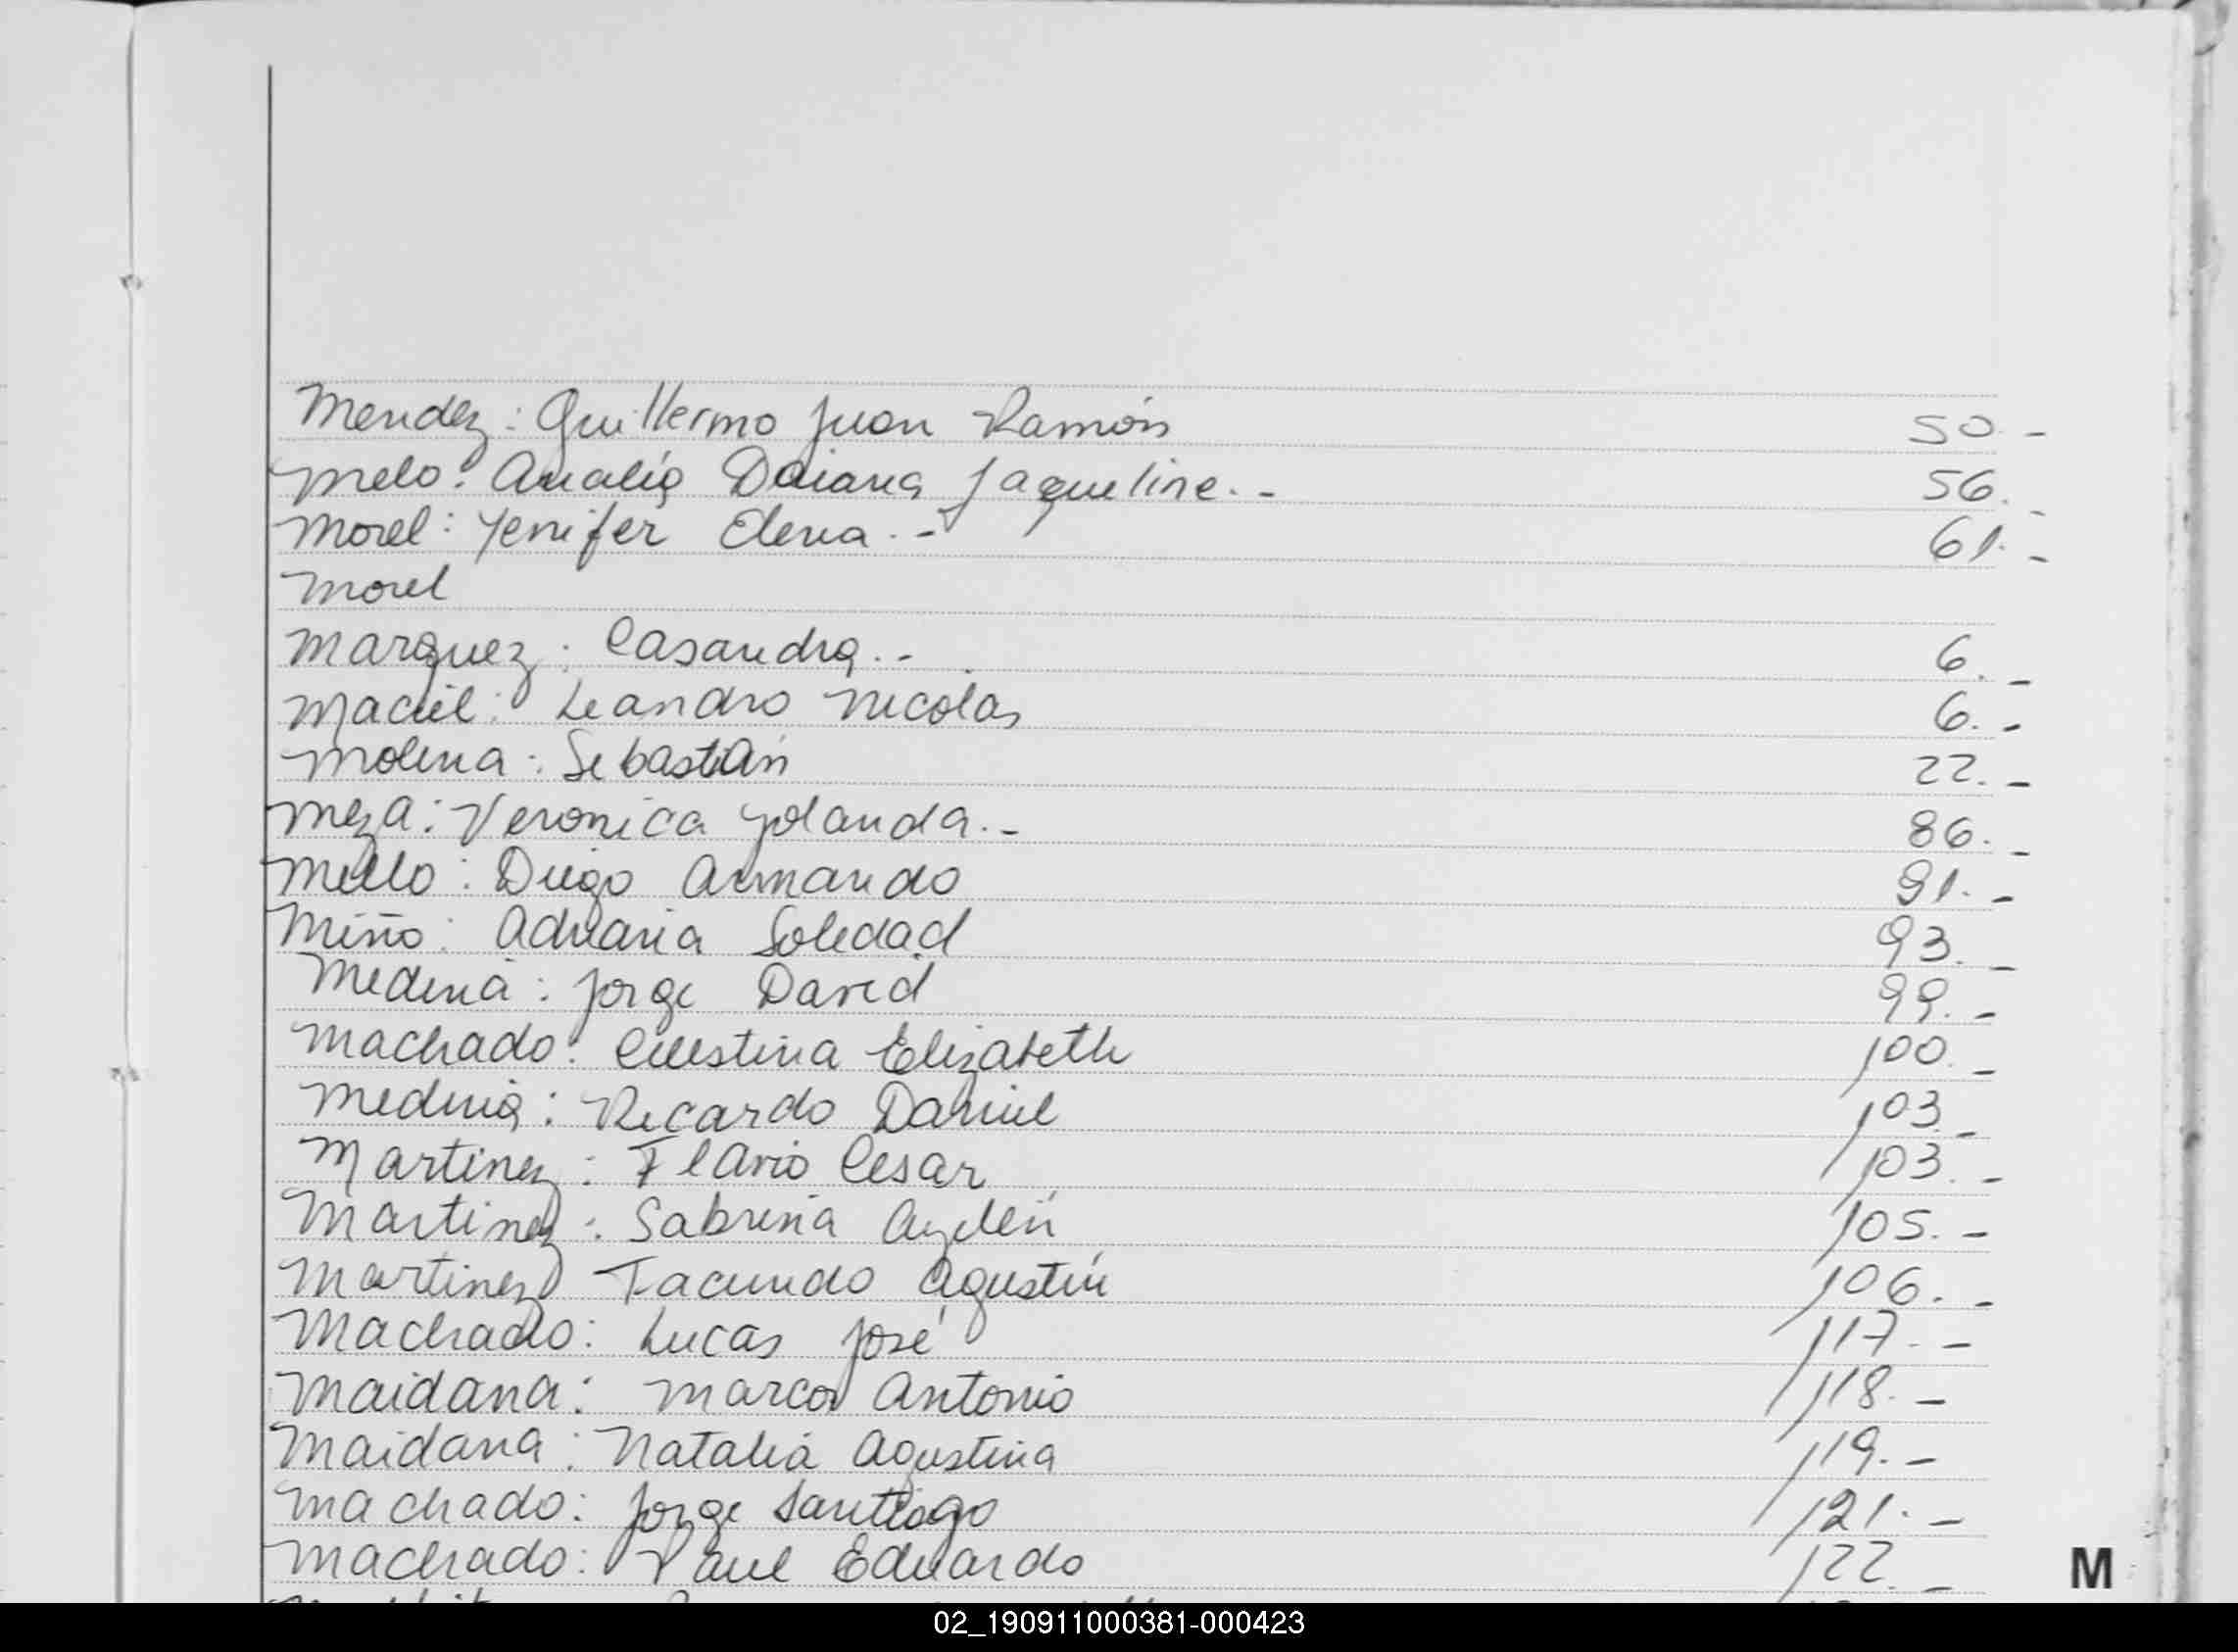 Mendez: Guillermo Juan Ramón 50.-
Melo: Analía Daiana Jaqueline.- 56.-
Morel: Yenifer Elena.- 61.-
Morel
Marquez: Casandra.- 6.-
Maciel: Leandro Nicolas 6.-
Molina: Sebastián 22.-
Meza: Veronica Yolanda.- 86.-
Mello: Diego Armando 91.-
Miño: Adriana Soledad 93.-
Medina: Jorge David 99.-
Machado: Celestina Elizabeth 100.-
Medina: Ricardo Daniel 103.-
Martinez: Flavio Cesar 103.-
Martinez: Sabrina Aylén 105.-
Martinez Facundo Agustín 106.-
Machado: Lucas José 117.-
Maidana: Marcos Antonio 118.-
Maidana: Natalia Agustina 119.-
Machado: Jorge Santiago 121.-
Machado: Raul Eduardo 122.-
M
02_190911000381-000423